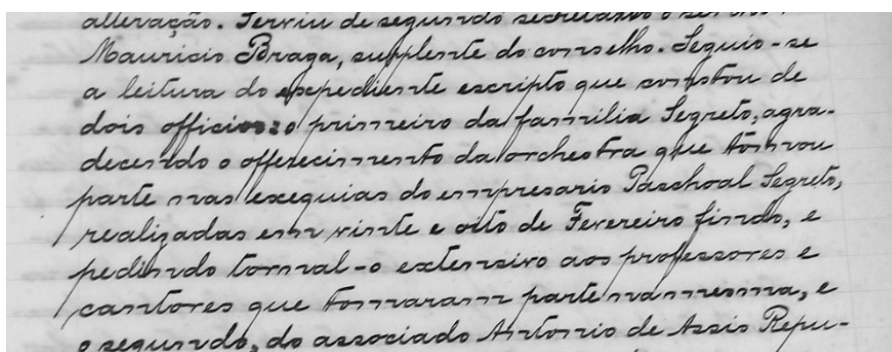 alteração. Serviu de segundo secretario o senhor
Mauricio Braga, supplente do conselho. Seguio-se
a leitura do expediente escripto que constou de
dois officios: o primeiro da familia Segreto, agra-
decendo o offerecimento da orchestra que tomou
parte nas exequias do empresario Paschoal Segreto,
realizadas em vinte e oito de Fevereiro findo, e
pedindo tornal-o extensivo aos professores e
cantores que tomaram parte na mesma, e
o segundo, do associado Antonio de Assis Repu-